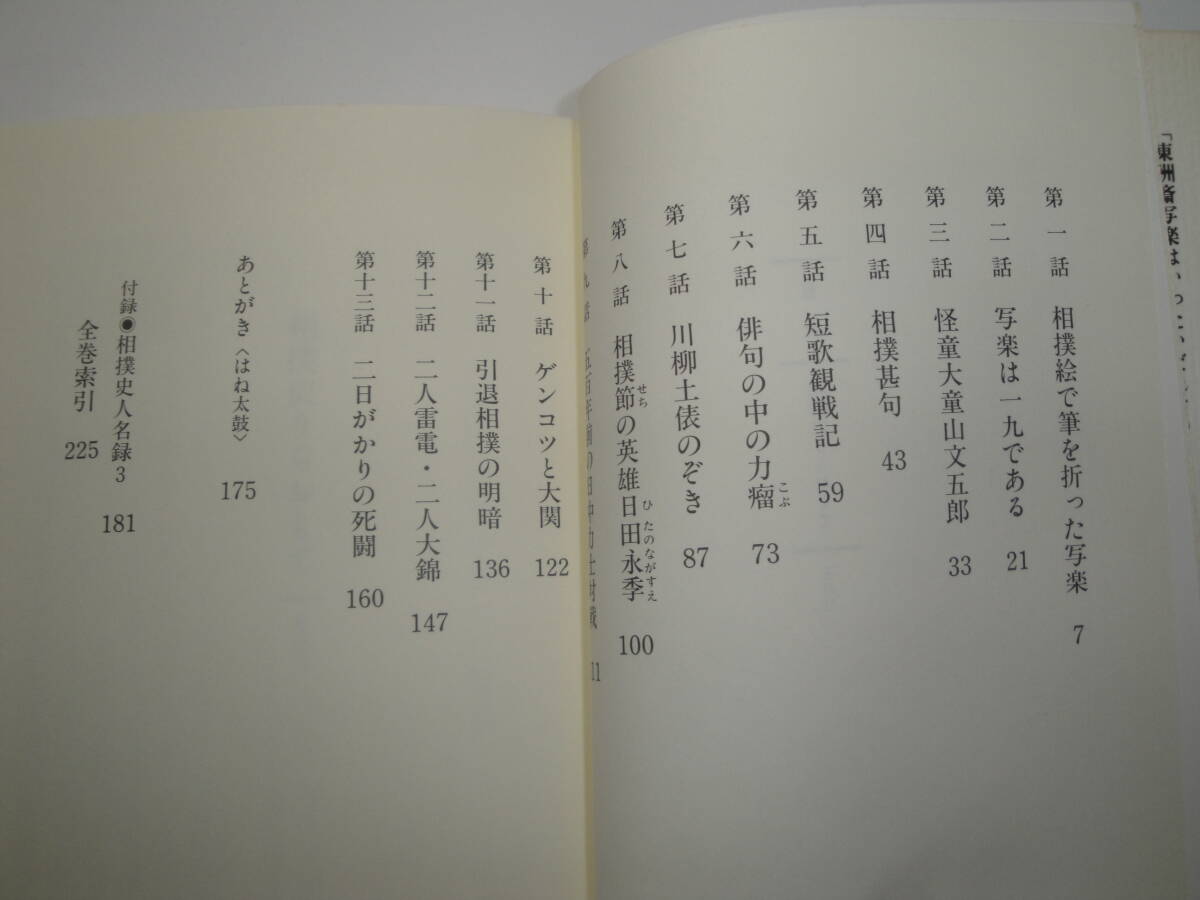 第一話　相撲絵で筆を折った写楽　7
第二話　写楽は一九である　21
第三話　怪童大童山文五郎　33
第四話　相撲甚句　43
第五話　短歌観戦記　59
第六話　俳句の中の力瘤　73
こぶ
第七話　川柳土俵のぞき　87
第八話　相撲節の英雄日田永季　100
せち
ひたのながすえ
第九話　五百年前の日中力士対戦　11
第十話　ゲンコツと大関　122
第十一話　引退相撲の明暗　136
第十二話　二人雷電・二人大錦　147
第十三話　二日がかりの死闘　160
あとがき〈はね太鼓〉　175
付録◉相撲史人名録3　181
全巻索引　225
「東洲斎写楽は